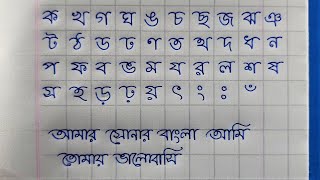 ক খ গ ঘ ঙ চ ছ জ ঝ ঞ
ট ঠ ড ঢ ণ ত থ দ ধ ন
প ফ ব ভ ম য র ল শ ষ
স হ ড় ঢ় য় ৎ ং ঃ ঁ
আমার সোনার বাংলা আমি
তোমায় ভালোবাসি